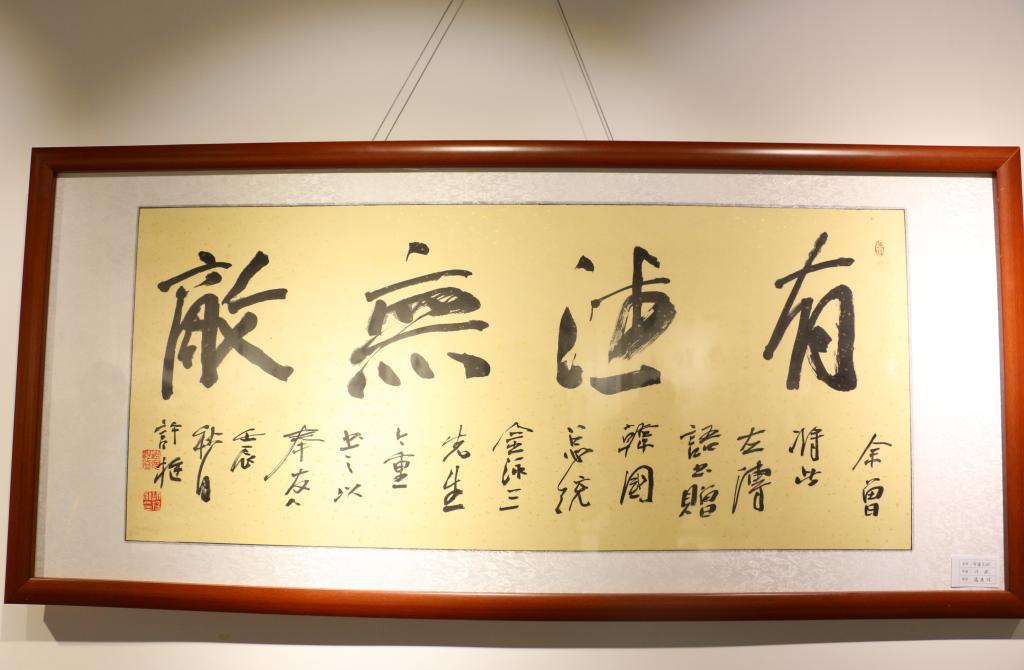 有無敵
余曾
將此
語書贈
韓國
總統
金泳三
先生
今重
書之以
奉友人
壬辰
秋月
許